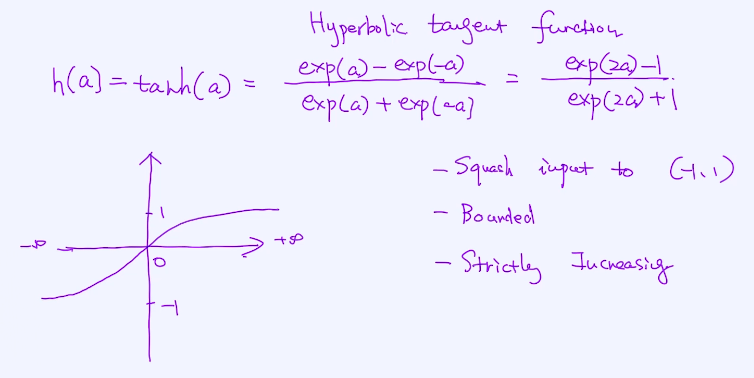 Hyperbolic tangent function
h(a) = tanh(a) = exp(a) - exp(-a) / exp(a) + exp(-a) = exp(2a) - 1 / exp(2a) + 1
- Squash input to (-1, 1)
- Bounded
- Strictly Increasing
1
-∞
+∞
0
-1